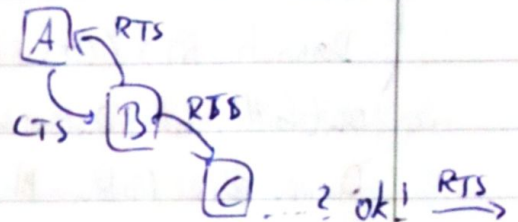 A RTS
CTS B RTS
C ....? ok! RTS